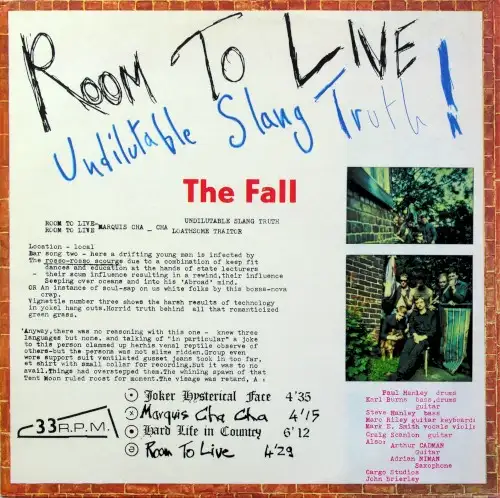 ROOM TO LIVE
Undilutable Slang Truth!
The Fall
ROOM TO LIVE= UNDILUTABLE SLANG TRUTH
ROOM TO LIVE MARQUIS CHA _ CHA LOATHSOME TRAITOR
Location - local
Bar song two - here a drifting young man is infected by
The rosso-rosso scourge due to a combination of keep fit
dances and education at the hands of state lecturers
- their scum influence resulting in a rewind, their influence
Seeping over oceans and into his 'Abroad' mind.
OR An instance of soul-sap on us white folks by this bossa-nova
crap.
Vignattle number three shows the harsh results of technology
in yokel hang outs.Horrid truth behind all that romanticized
green grass.
'Anyway,there was no reasoning with this one - knew three
languages but none, and talking of "in particular" a joke
to this person clammed up her/his venal reptile observe of
others-but the persona was not slime ridden.Group even
wore support suit ventilated gusset jeans took in too far,
et shirt with small collar for recording.But it was to no
avail.Things had overstepped them.The whining spawn of that
Tent Moon ruled roost for moment.The visage was retard, A :
Joker Hysterical Face 4'35
Marquis Cha Cha 4'15
Hard Life in Country 6'12
Room To Live 4'29
33 R.P.M.
Paul Hanley drums
Karl Burns bass,drums
guitar
Steve Hanley bass
Marc Riley guitar keyboard
Mark E. Smith vocals violin
Craig Scanlon guitar
Also:
Arthur CADMAN
Guitar
Adrian NIMAN
Saxophone
Cargo Studios
John Brierley